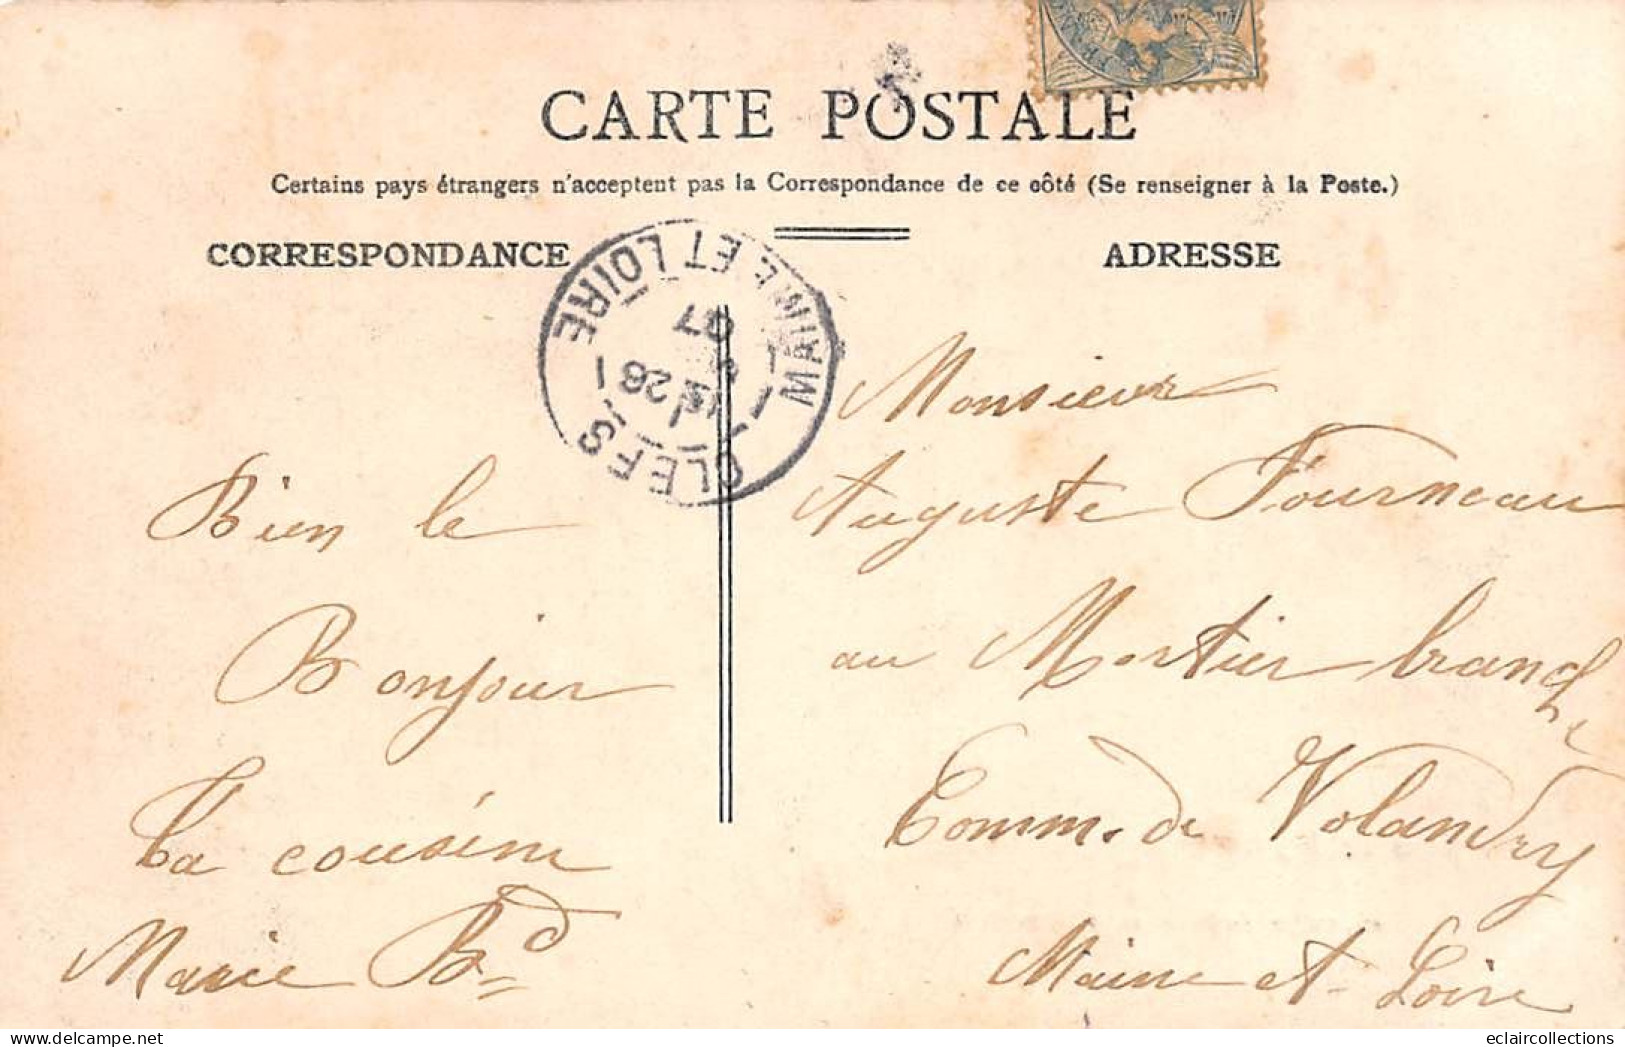 CARTE POSTALE
Certains pays étrangers n'acceptent pas la Correspondance de ce côté (Se renseigner à la Poste.)
CORRESPONDANCE
ADRESSE
CLEFS
MAINE ET LOIRE
26
07
Bien le
Bonjour
Ta cousine
Marie Bd
Monsieur
Auguste Fourneau
au Mortier branche
Comm. de Volandry
Maine et Loire
eclaircollections